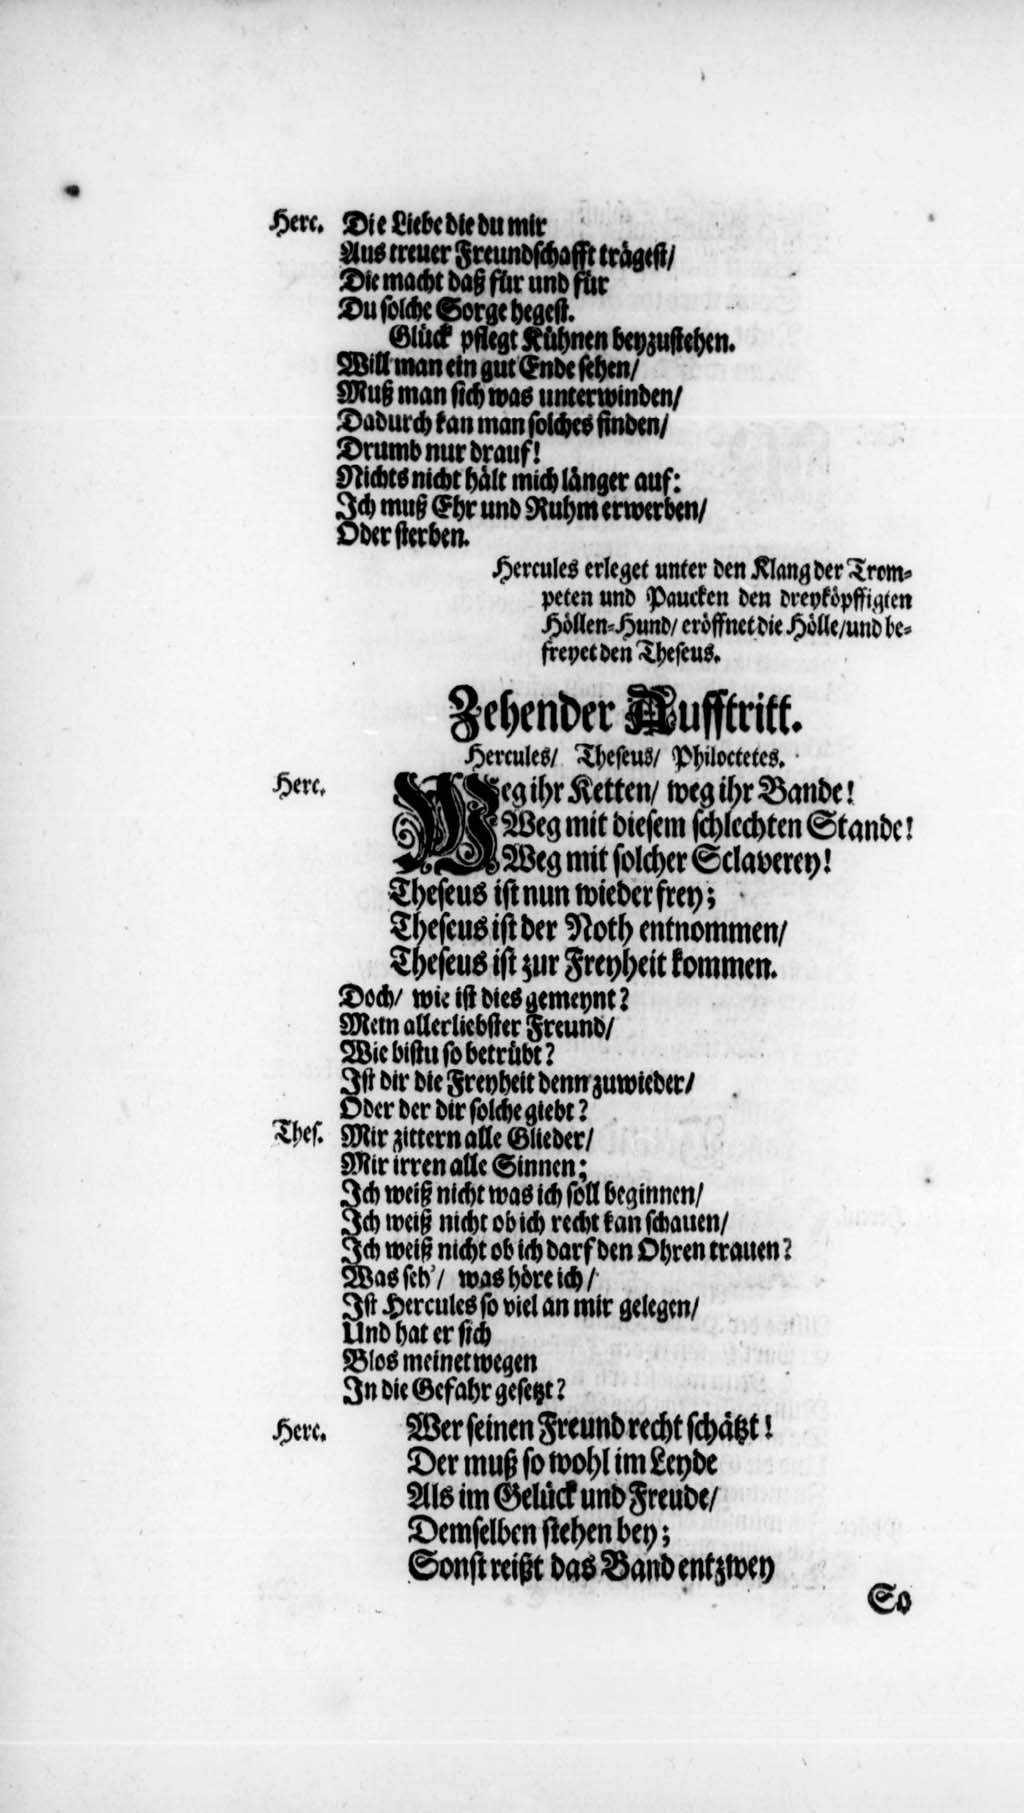 Herc. Die Liebe die du mir
Aus treuer Freundschafft trägest/
Die macht daß für und für
Du solche Sorge hegest.
Glück pflegt Kühnen beyzustehen.
Will man ein gut Ende sehen/
Muß man sich was unterwinden/
Dadurch kan man solches finden/
Drumb nur drauf!
Nichts nicht hält mich länger auf:
Ich muß Ehr und Ruhm erwerben/
Oder sterben.
Hercules erleget unter den Klang der Trom-
peten und Paucken den dreyköpffigten
Höllen-Hund/ eröffnet die Hölle/und be-
freyet den Theseus.
Zehender Aufftritt.
Hercules/ Theseus/ Philoctetes.
Herc. Weg ihr Ketten/ weg ihr Bande!
Weg mit diesem schlechten Stande!
Weg mit solcher Sclaverey!
Theseus ist nun wieder frey;
Theseus ist der Noth entnommen/
Theseus ist zur Freyheit kommen.
Doch/ wie ist dies gemeynt?
Mein allerliebster Freund/
Wie bistu so betrübt?
Ist dir die Freyheit denn zuwieder/
Oder der dir solche giebt?
Thes. Mir zittern alle Glieder/
Mir irren alle Sinnen;
Ich weiß nicht was ich soll beginnen/
Ich weiß nicht ob ich recht kan schauen/
Ich weiß nicht ob ich darf den Ohren trauen?
Was seh'/ was höre ich/
Ist Hercules so viel an mir gelegen/
Und hat er sich
Blos meinetwegen
In die Gefahr gesetzt?
Herc. Wer seinen Freund recht schätzt!
Der muß so wohl im Leyde
Als im Gelück und Freude/
Demselben stehen bey;
Sonst reißt das Band entzwey
So